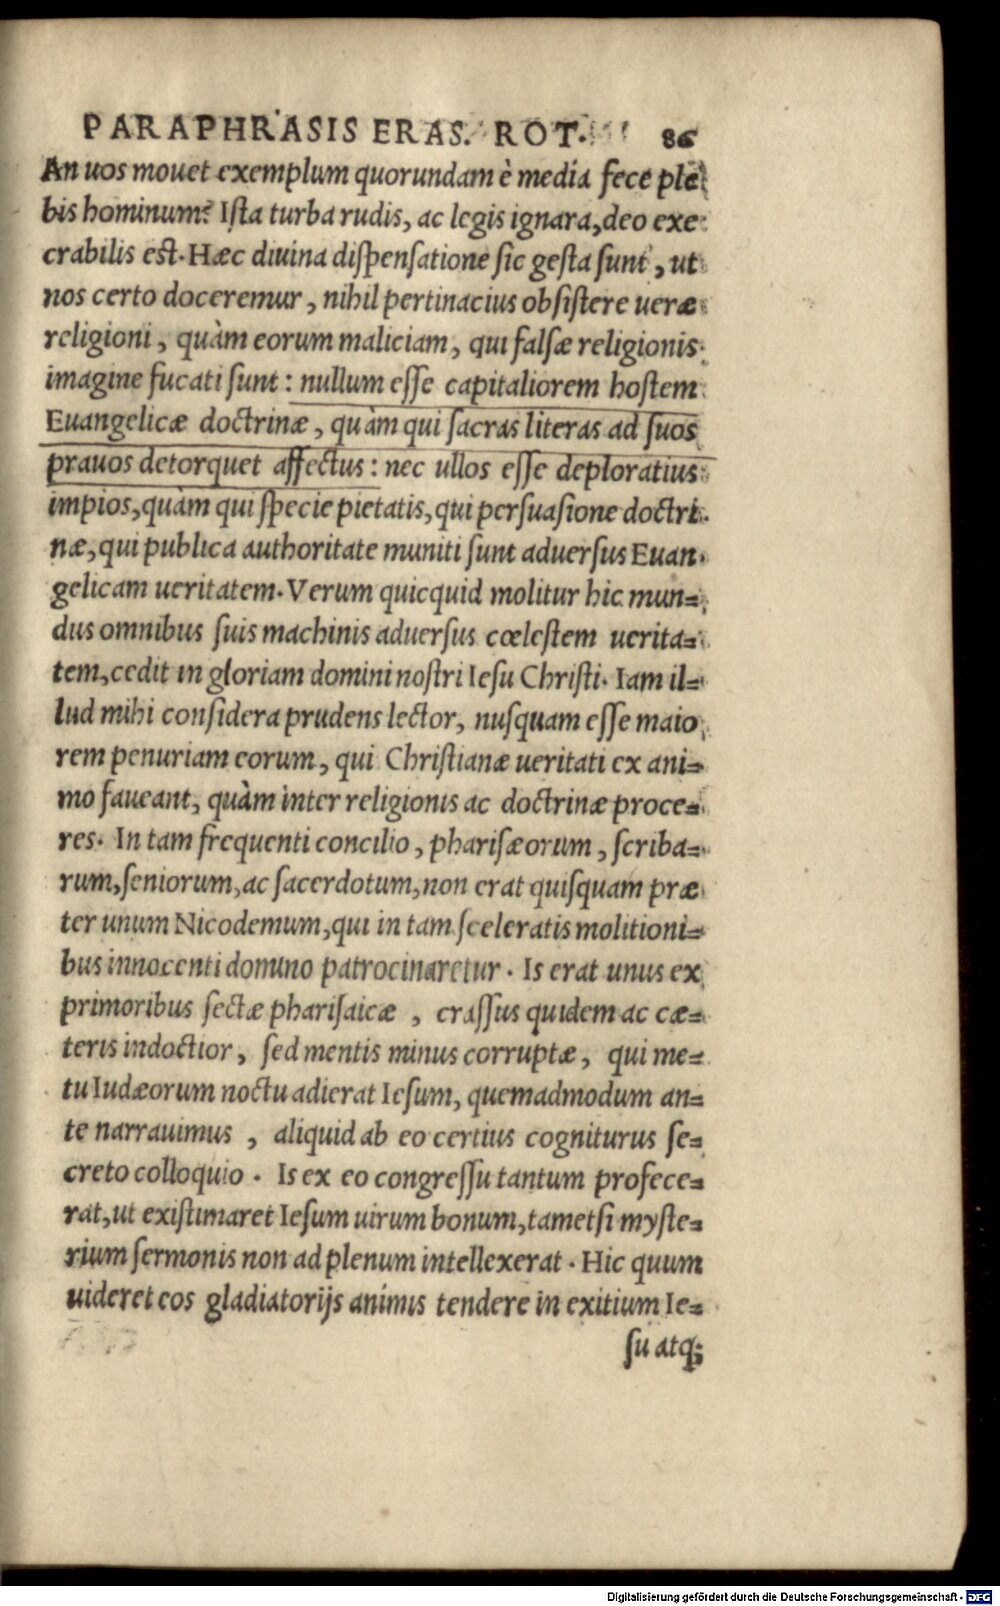 PARAPHRASIS ERAS. ROT. 86
An uos mouet exemplum quorundam è media fece ple
bis hominum? Ista turba rudis, ac legis ignara, deo exe
crabilis est. Hæc diuina dispensatione sic gesta sunt, ut
nos certo doceremur, nihil pertinacius obsistere ueræ
religioni, quàm eorum maliciam, qui falsæ religionis
imagine fucati sunt: nullum esse capitaliorem hostem
Euangelicæ doctrinæ, quàm qui sacras literas ad suos
prauos detorquet affectus: nec ullos esse deploratius
impios, quàm qui specie pietatis, qui persuasione doctri-
næ, qui publica authoritate muniti sunt aduersus Euan-
gelicam ueritatem. Verum quicquid molitur hic mun-
dus omnibus suis machinis aduersus cœlestem uerita-
tem, cedit in gloriam domini nostri Iesu Christi. Iam il-
lud mihi considera prudens lector, nusquam esse maio
rem penuriam eorum, qui Christianæ ueritati ex ani-
mo faueant, quàm inter religionis ac doctrinæ proce-
res. In tam frequenti concilio, pharisæorum, scriba-
rum, seniorum, ac sacerdotum, non erat quisquam præ
ter unum Nicodemum, qui in tam sceleratis molitioni-
bus innocenti domino patrocinaretur. Is erat unus ex
primoribus sectæ pharisaicæ, crassus quidem ac cæ-
teris indoctior, sed mentis minus corruptæ, qui me-
tu Iudæorum noctu adierat Iesum, quemadmodum an-
te narrauimus, aliquid ab eo certius cogniturus se-
creto colloquio. Is ex eo congressu tantum profece-
rat, ut existimaret Iesum uirum bonum, tametsi myste-
rium sermonis non ad plenum intellexerat. Hic quum
uideret eos gladiatorijs animis tendere in exitium Ie-
su atq;
Digitalisierung gefördert durch die Deutsche Forschungsgemeinschaft - DFG